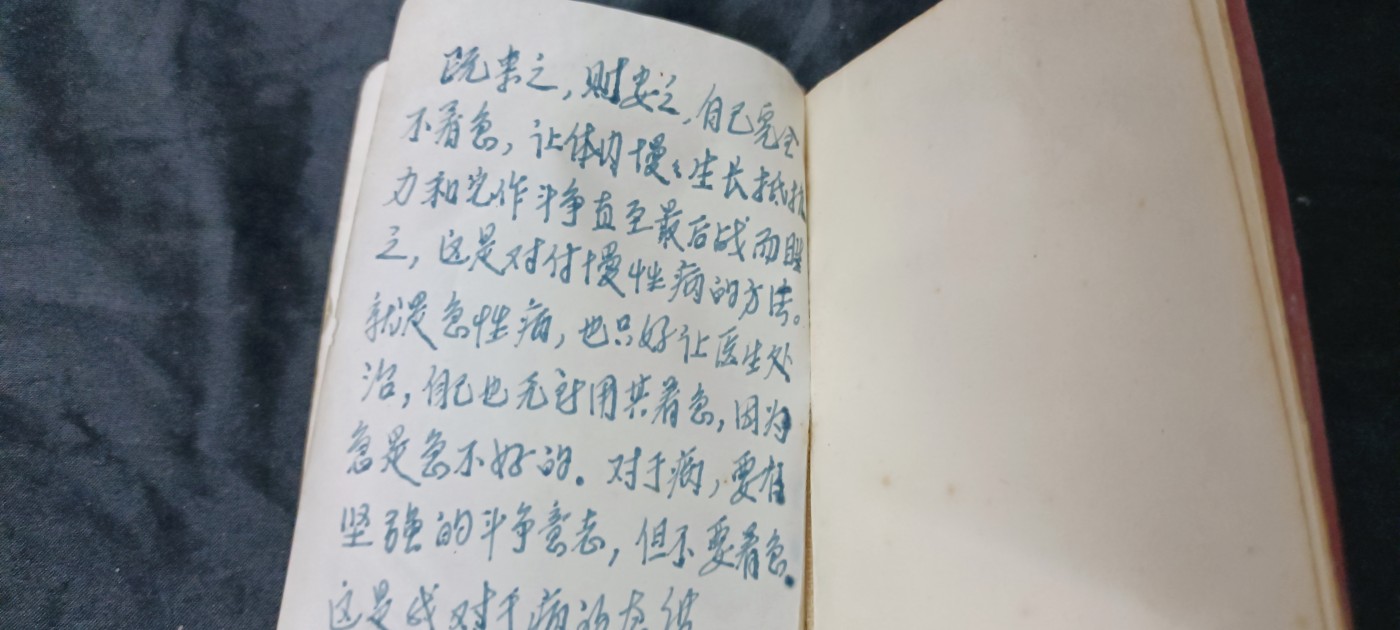 既来之，则安之，自己完全
不着急，让体内慢々生长抵抗
力和它作斗争直至最后战而胜
之，这是对付慢性病的方法。
就是急性病，也只好让医生处
治，自己也无所用其着急，因为
急是急不好的。对于病，要有
坚强的斗争意志，但不要着急。
这是我对于病的态度